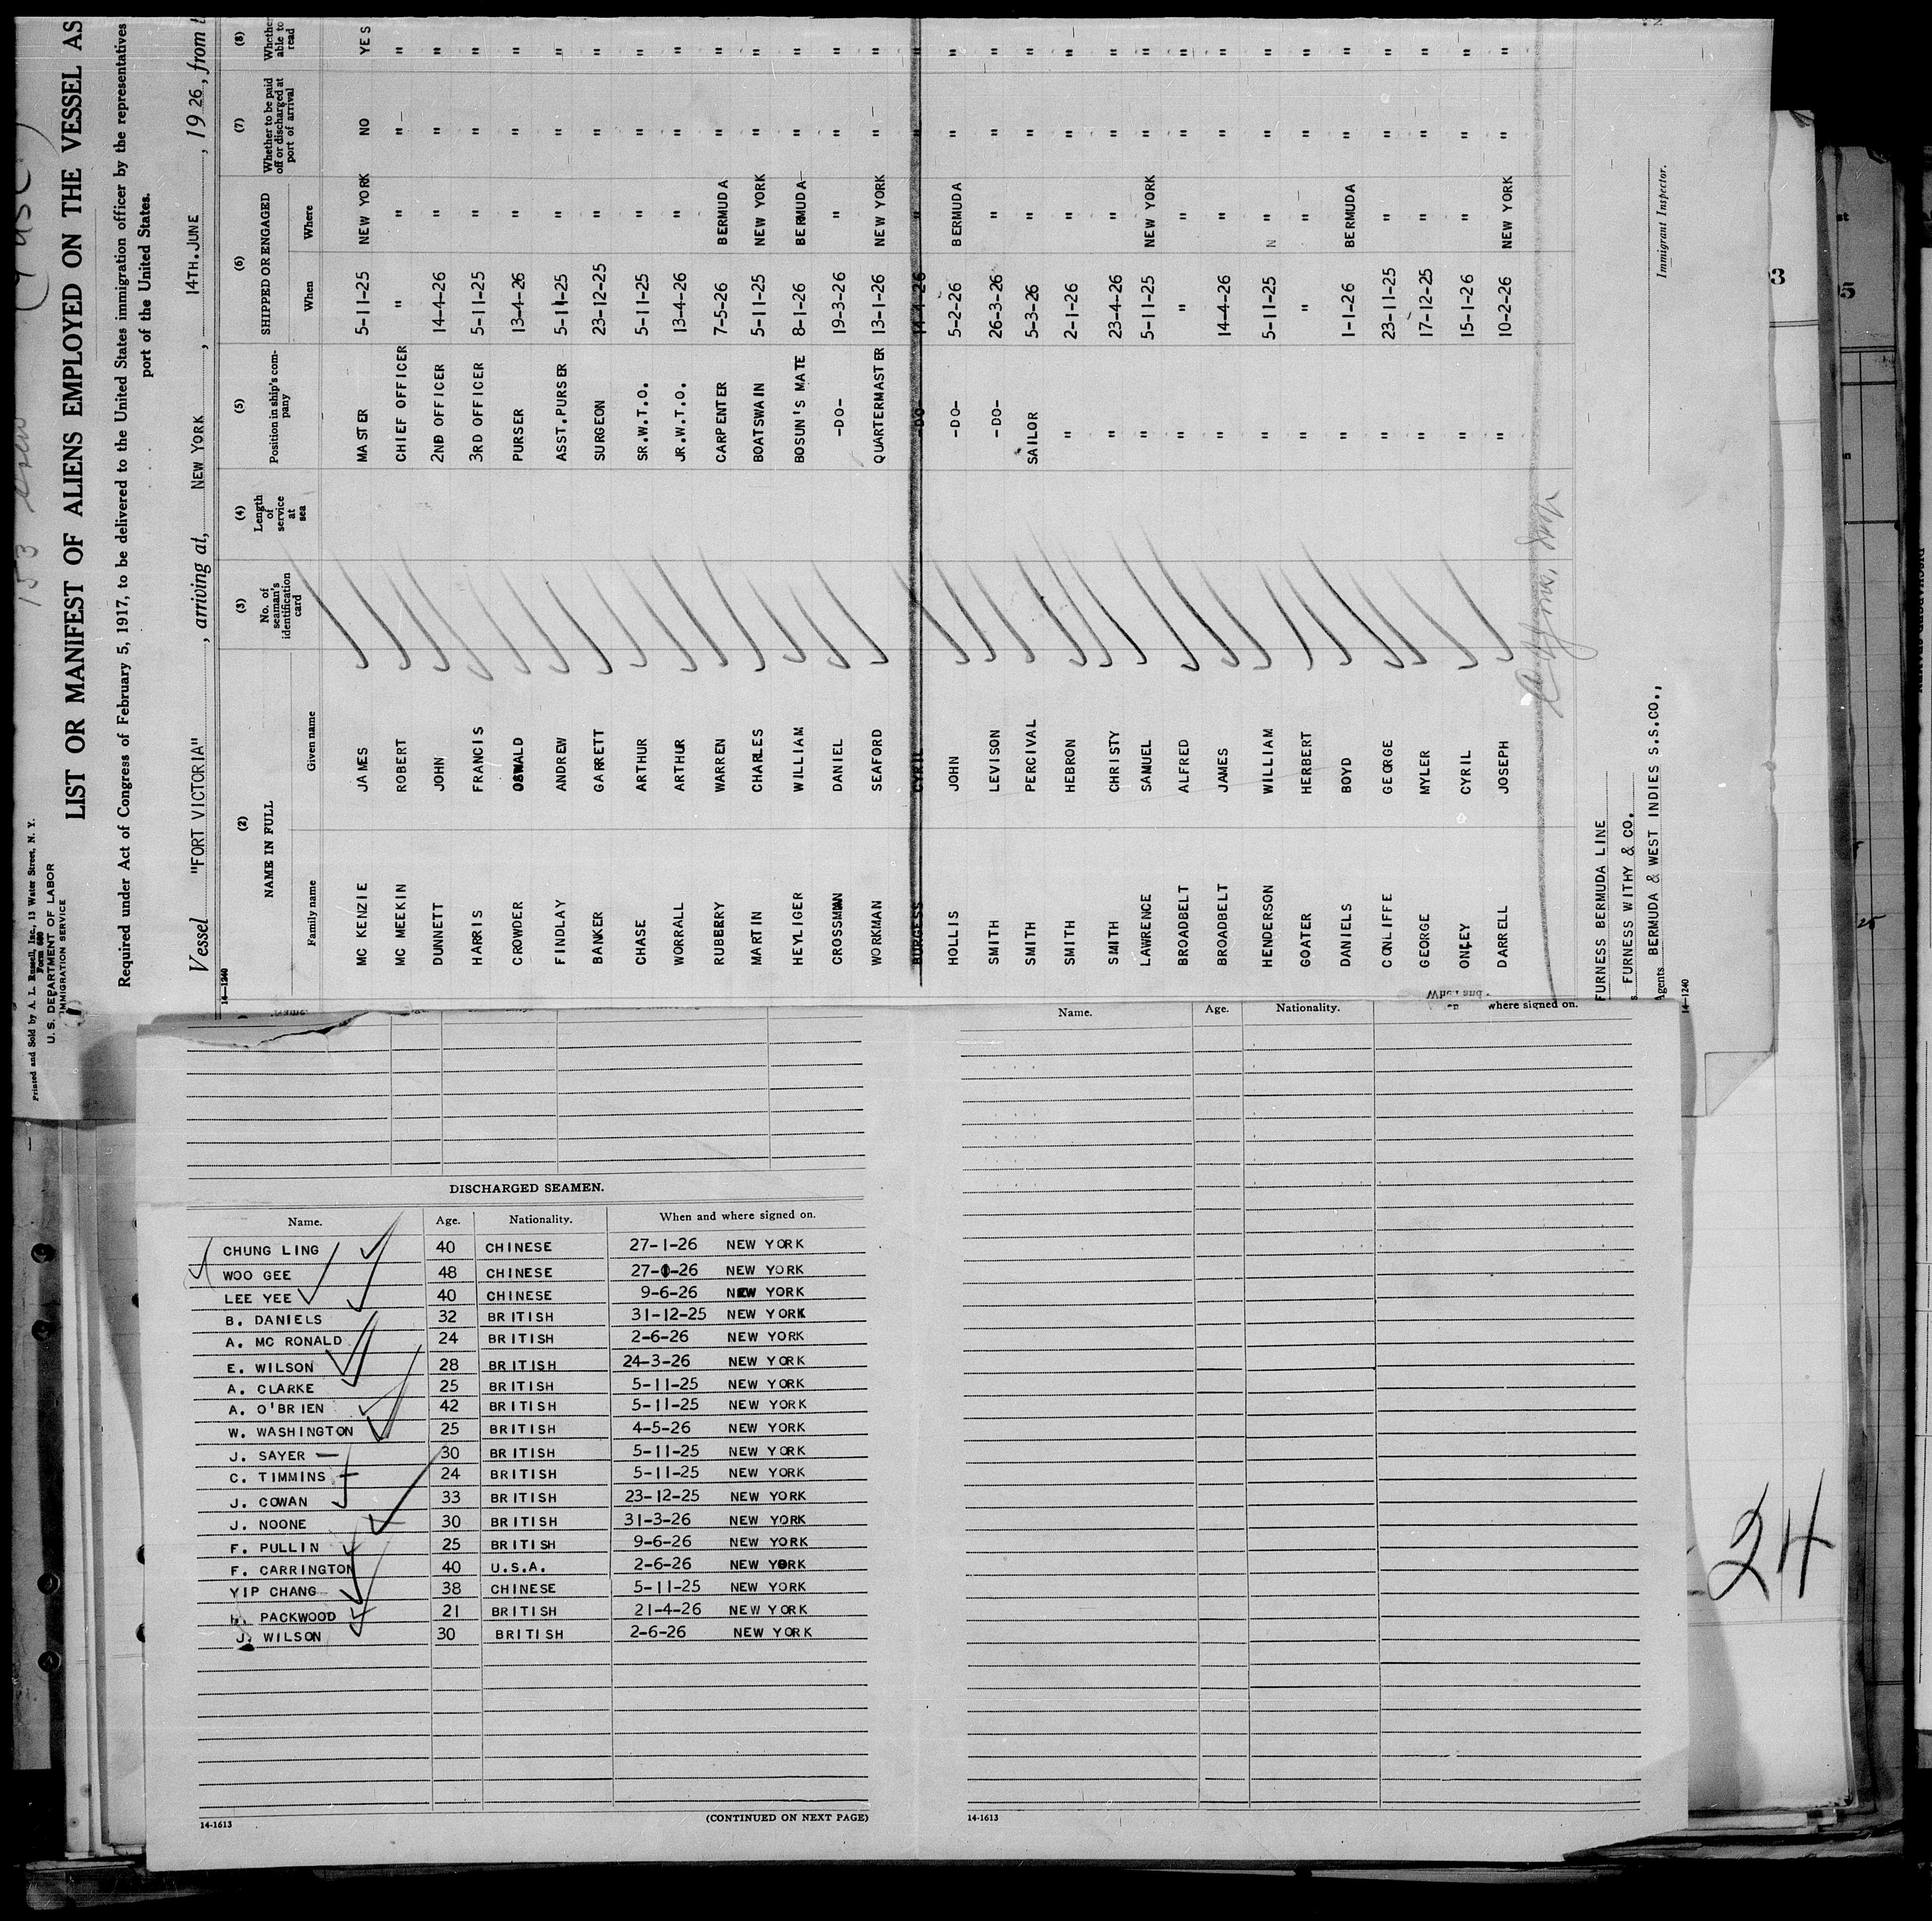 Printed and Sold by A. L. Russell, Inc., 13 Water Street, N. Y.
Form 680
U. S. DEPARTMENT OF LABOR
IMMIGRATION SERVICE
153 crew
LIST OR MANIFEST OF ALIENS EMPLOYED ON THE VESSEL AS
Required under Act of Congress of February 5, 1917, to be delivered to the United States immigration officer by the representatives
port of the United States.
Vessel "FORT VICTORIA", arriving at, NEW YORK, 14TH.JUNE, 1926, from
14—1240
(2) (3) (4) (5) (6) (7) (8)
NAME IN FULL No. of seaman's identification card Length of service at sea Position in ship's company SHIPPED OR ENGAGED Whether to be paid off or discharged at port of arrival Whether able to read
Family name Given name When Where
MC KENZIE JAMES MASTER 5-11-25 NEW YORK NO YES
MC MEEKIN ROBERT CHIEF OFFICER " " " "
DUNNETT JOHN 2ND OFFICER 14-4-26 " " "
HARRIS FRANCIS 3RD OFFICER 5-11-25 " " "
CROWDER OSWALD PURSER 13-4-26 " " "
FINDLAY ANDREW ASST.PURSER 5-11-25 " " "
BANKER GARRETT SURGEON 23-12-25 " " "
CHASE ARTHUR SR.W.T.O. 5-11-25 " " "
WORRALL ARTHUR JR.W.T.O. 13-4-26 " " "
RUBBERY WARREN CARPENTER 7-5-26 BERMUDA " "
MARTIN CHARLES BOATSWAIN 5-11-25 NEW YORK " "
HEYLIGER WILLIAM BOSUN'S MATE 8-1-26 BERMUDA " "
CROSSMAN DANIEL -DO- 19-3-26 " " "
WORKMAN SEAFORD QUARTERMASTER 13-1-26 NEW YORK " "
BURGESS CYRIL -DO- 14-4-26 " " "
HOLLIS JOHN -DO- 5-2-26 BERMUDA " "
SMITH LEVISON -DO- 26-3-26 " " "
SMITH PERCIVAL SAILOR 5-3-26 " " "
SMITH HEBRON " 2-1-26 " " "
SMITH CHRISTY " 23-4-26 " " "
LAWRENCE SAMUEL " 5-11-25 NEW YORK " "
BROADBELT ALFRED " " " " "
BROADBELT JAMES " 14-4-26 " " "
HENDERSON WILLIAM " 5-11-25 " " "
GOATER HERBERT " " " " "
DANIELS BOYD " 1-1-26 BERMUDA " "
CONLIFFE GEORGE " 23-11-25 " " "
GEORGE MYLER " 17-12-25 " " "
ONLEY CYRIL " 15-1-26 " " "
DARRELL JOSEPH " 10-2-26 NEW YORK " "
FURNESS BERMUDA LINE
FURNESS WITHY & CO.
Agents BERMUDA & WEST INDIES S.S.CO.,
Immigrant Inspector.
14—1240
DISCHARGED SEAMEN.
Name. Age. Nationality. When and where signed on.
CHUNG LING 40 CHINESE 27-1-26 NEW YORK
WOO GEE 48 CHINESE 27-1-26 NEW YORK
LEE YEE 40 CHINESE 9-6-26 NEW YORK
B. DANIELS 32 BRITISH 31-12-25 NEW YORK
A. MC RONALD 24 BRITISH 2-6-26 NEW YORK
E. WILSON 28 BRITISH 24-3-26 NEW YORK
A. CLARKE 25 BRITISH 5-11-25 NEW YORK
A. O'BRIEN 42 BRITISH 5-11-25 NEW YORK
W. WASHINGTON 25 BRITISH 4-5-26 NEW YORK
J. SAYER 30 BRITISH 5-11-25 NEW YORK
C. TIMMINS 24 BRITISH 5-11-25 NEW YORK
J. COWAN 33 BRITISH 23-12-25 NEW YORK
J. NOONE 30 BRITISH 31-3-26 NEW YORK
F. PULLIN 25 BRITISH 9-6-26 NEW YORK
F. CARRINGTON 40 U.S.A. 2-6-26 NEW YORK
YIP CHANG 38 CHINESE 5-11-25 NEW YORK
PACKWOOD 21 BRITISH 21-4-26 NEW YORK
J. WILSON 30 BRITISH 2-6-26 NEW YORK
14-1613 (CONTINUED ON NEXT PAGE)
Name. Age. Nationality. where signed on.
14-1613
24